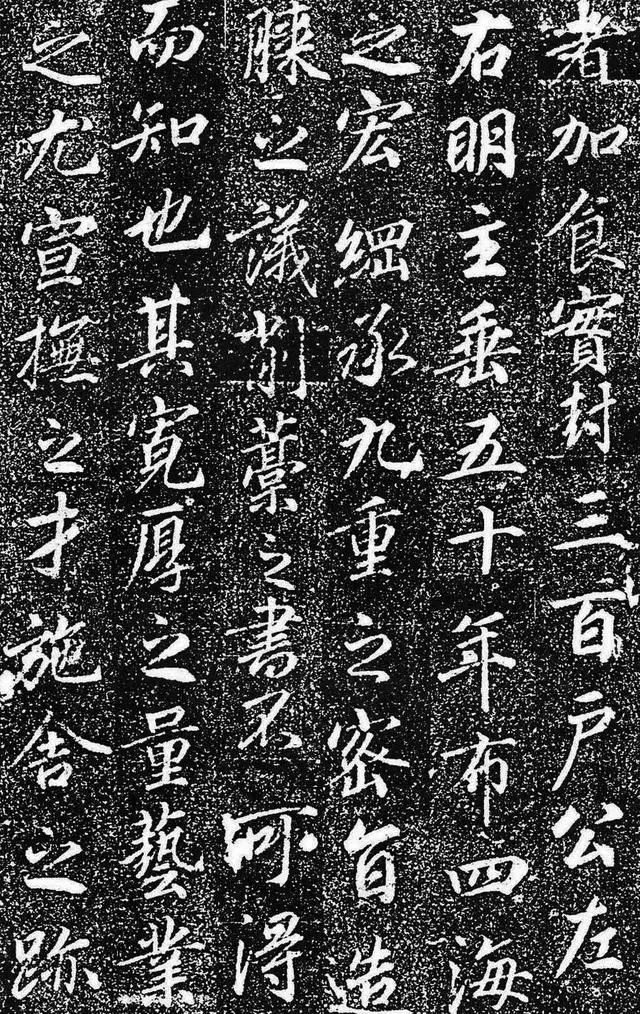 者加食實封三百戶公左
右明主垂五十年布四海
之宏綱承九重之密旨造
膝之議削藁之書不可得
而知也其寛厚之量藝業
之尤宣撫之才施舍之跡